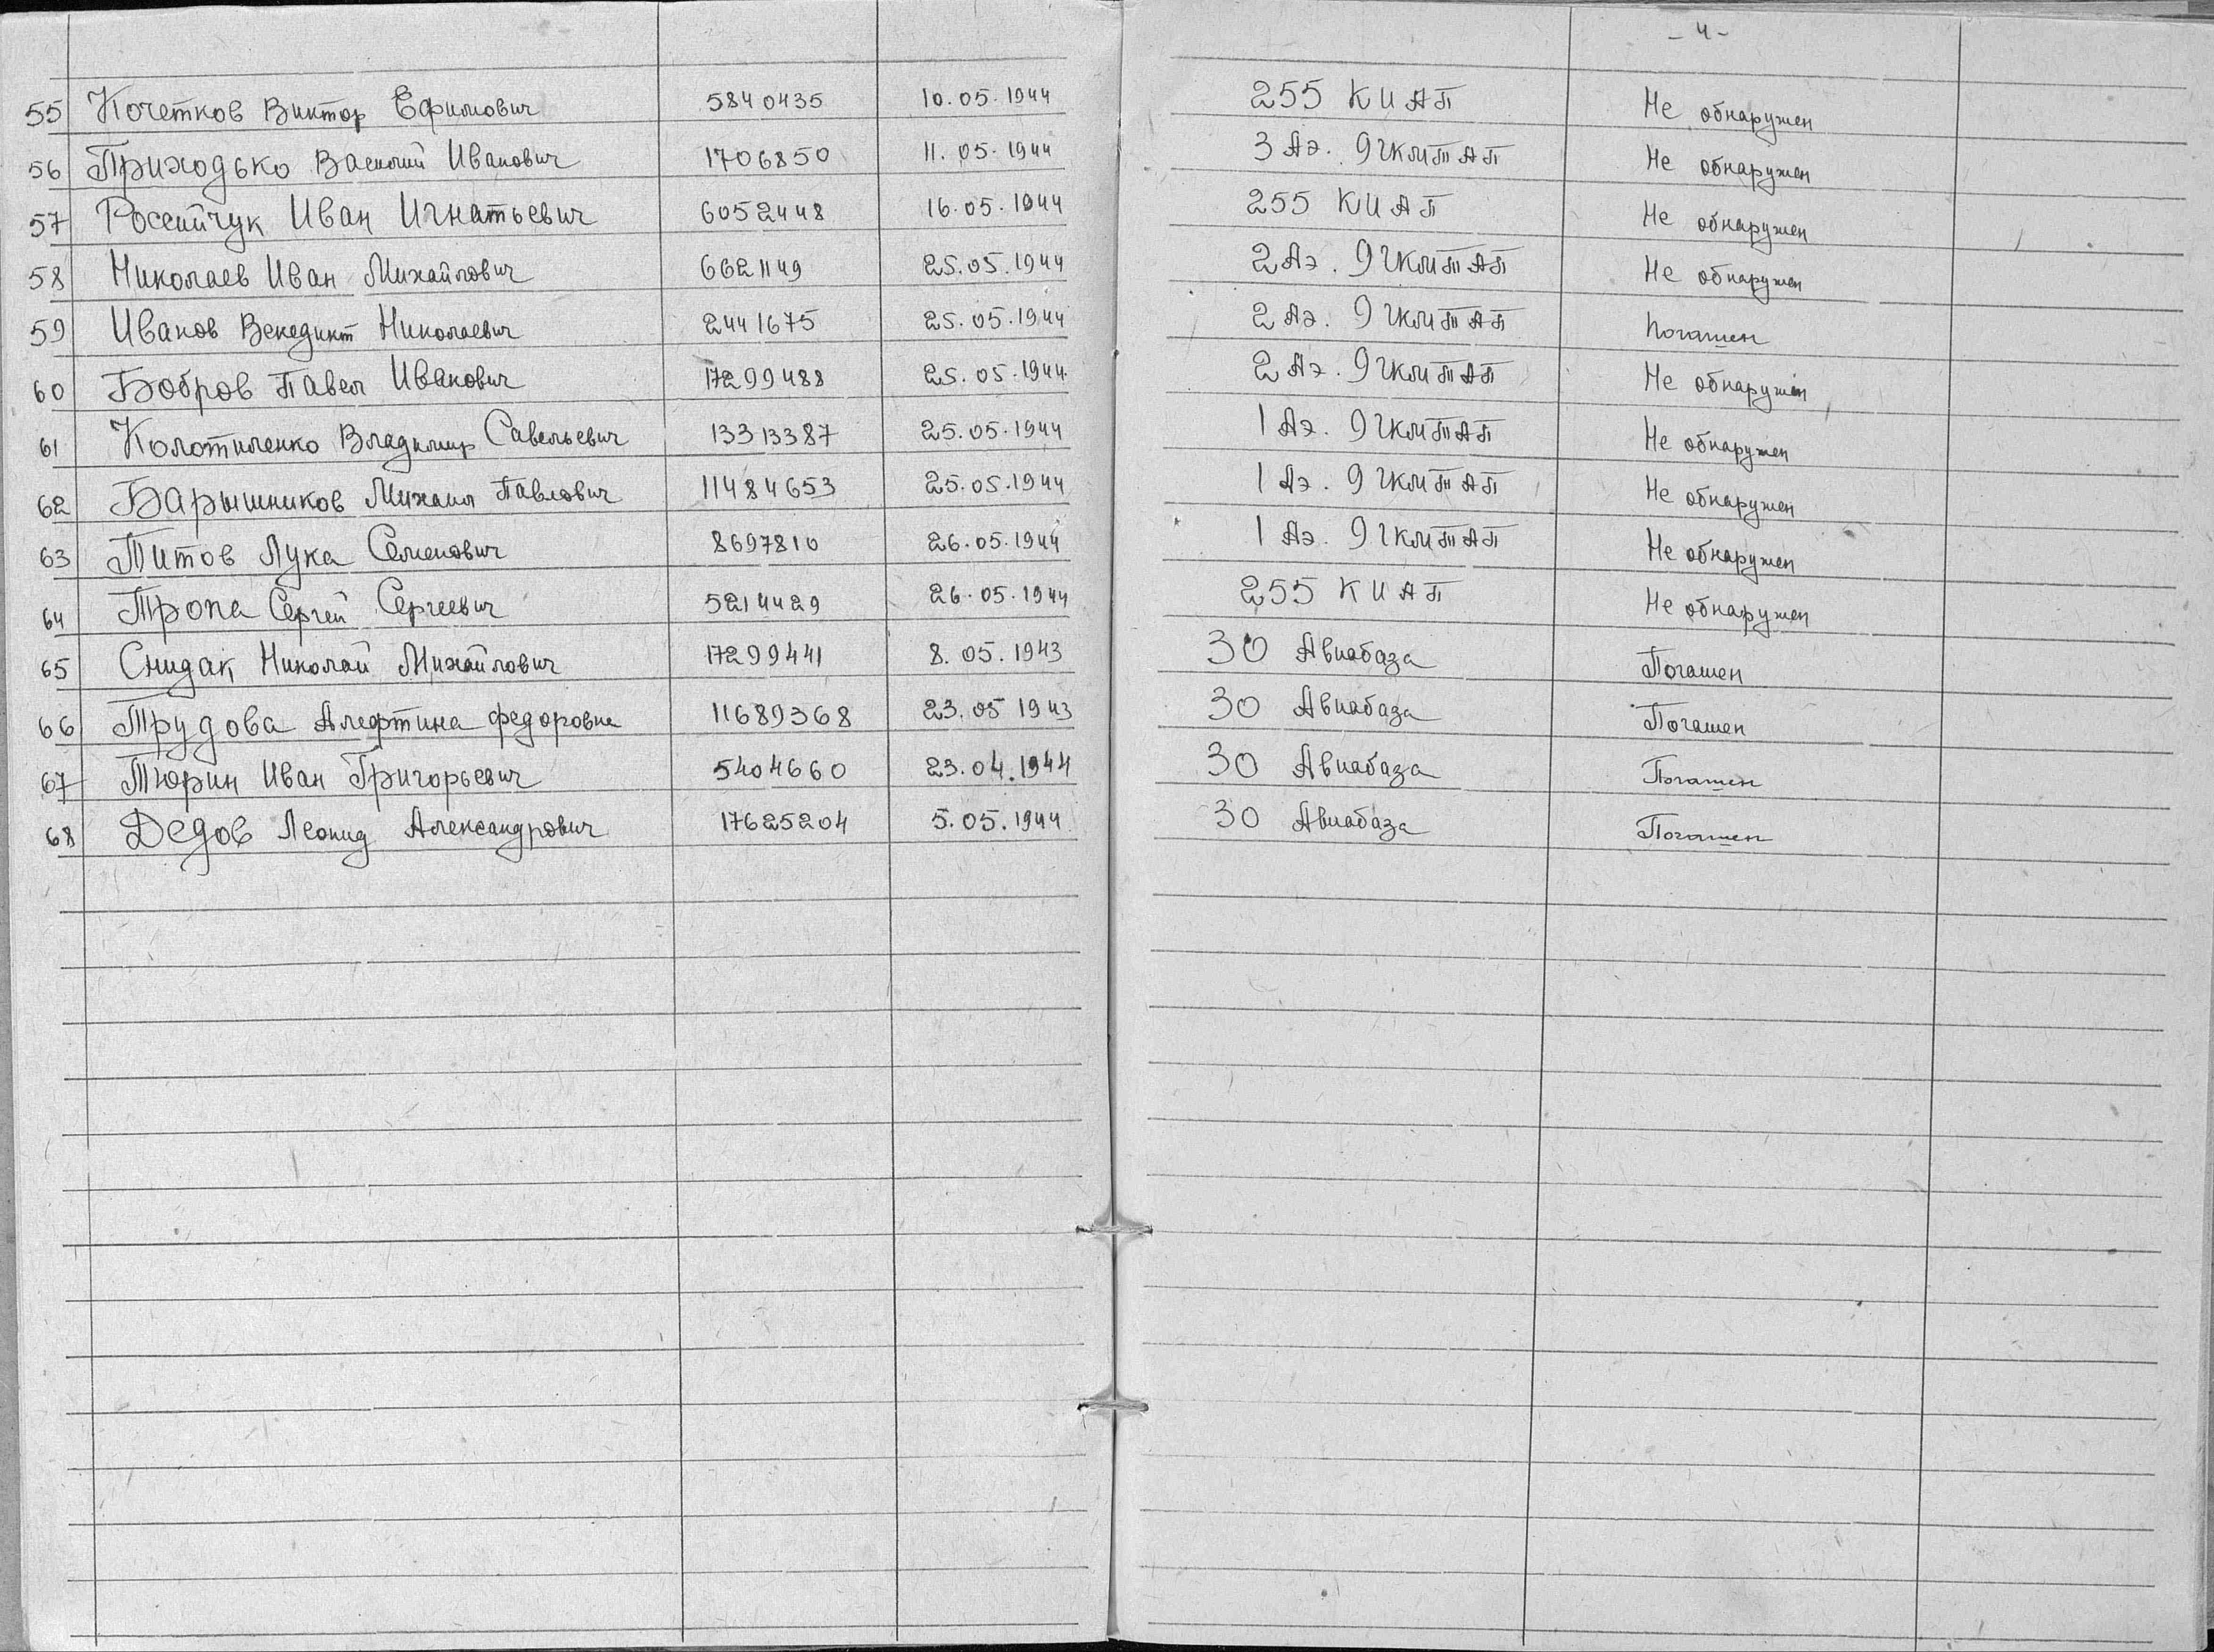 - 4 -
55 Кочетков Виктор Ефимович 5840435 10.05.1944 255 КИАП Не обнаружен
56 Приходько Василий Иванович 1706850 11.05.1944 3 Аэ. 9 ГКМТАП Не обнаружен
57 Иван Игнатьевич 6052448 16.05.1944 255 КИАП Не обнаружен
58 Николаев Иван Михайлович 6621149 25.05.1944 2 Аэ. 9 ГКМТАП Не обнаружен
59 Иванов Венедикт Николаевич 2441675 25.05.1944 2 Аэ. 9 ГКМТАП Погашен
60 Бобров Павел Иванович 17299488 25.05.1944 2 Аэ. 9 ГКМТАП Не обнаружен
61 Колотиленко Владимир Савельевич 13313387 25.05.1944 1 Аэ. 9 ГКМТАП Не обнаружен
62 Барышников Михаил Павлович 11484653 25.05.1944 1 Аэ. 9 ГКМТАП Не обнаружен
63 Титов Лука Семенович 8697810 26.05.1944 1 Аэ. 9 ГКМТАП Не обнаружен
64 Тропа Сергей Сергеевич 5214429 26.05.1944 255 КИАП Не обнаружен
65 Снидак Николай Михайлович 17299441 8.05.1943 30 Авиабаза Погашен
66 Трудова Алефтина Федоровна 11689368 23.05 1943 30 Авиабаза Погашен
67 Тюрин Иван Григорьевич 5404660 23.04.1944 30 Авиабаза Погашен
68 Дедов Леонид Александрович 17625204 5.05.1944 30 Авиабаза Погашен